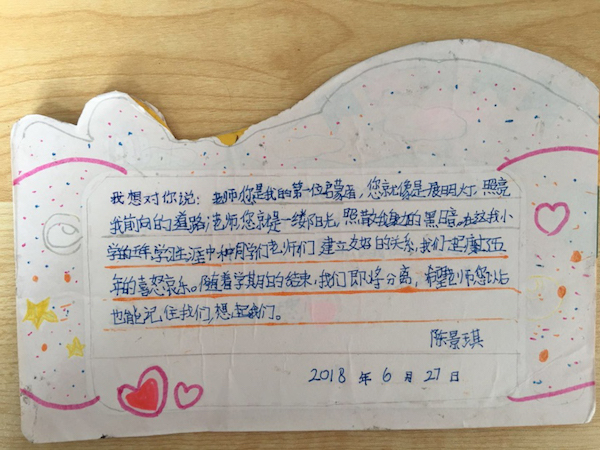 我想对你说：老师你是我的第一位启蒙者，您就像是一展明灯，照亮
我前向的道路；老师，您就是一缕阳光，照散我身边的黑暗。在这我小
学的五年，学习生涯中和同学们老师们建立友好的关系，我们一起度了五
年的喜怒哀乐。随着学期的结束，我们即将分离，希望老师您以后
也能记住我们，想起我们。
陈景琪
2018 年 6 月 27 日